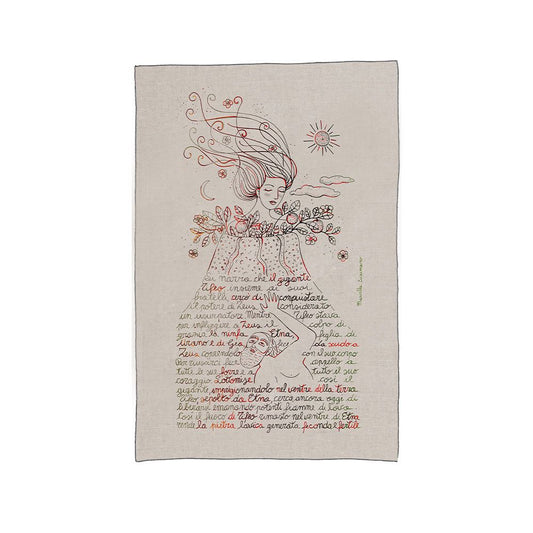 Si narra che il gigante
Tifeo insieme ai suoi
fratelli cercò di conquistare
il potere di Zeus considerato
un usurpatore Mentre Tifeo stava
per infliggere a Zeus il colpo di
grazia la ninfa Etna figlia di
Urano e di Gea fece da scudo a
Zeus coprendolo con il suo corpo
Per riuscirci fece appello a
tutte le sue forze e a tutto il suo
coraggio Sottomise così il
gigante imprigionandolo nel ventre della terra
Tifeo, sepolto da Etna cerca ancora oggi di
liberarsi emanando potenti fiamme di lava
Così il fuoco di Tifeo rimasto nel ventre di Etna
rende la pietra lavica generata feconda e fertile